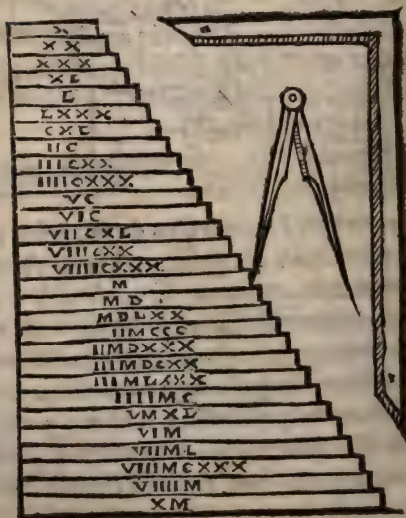 X.
XX
XXX
XL
L
LXXX
CXL
IIC
IIICXX
IIIICXXX
VC
VIC
VIICXL
VIIICXX
VIIIICXXX
M
MD
MDLXX
IIMCCC
IIMDXXX
IIIMDCXX
IIIMLXXX
IIIIMC
VMXL
VIM
VIIML
VIIIMCXXX
VIIIIM
XM